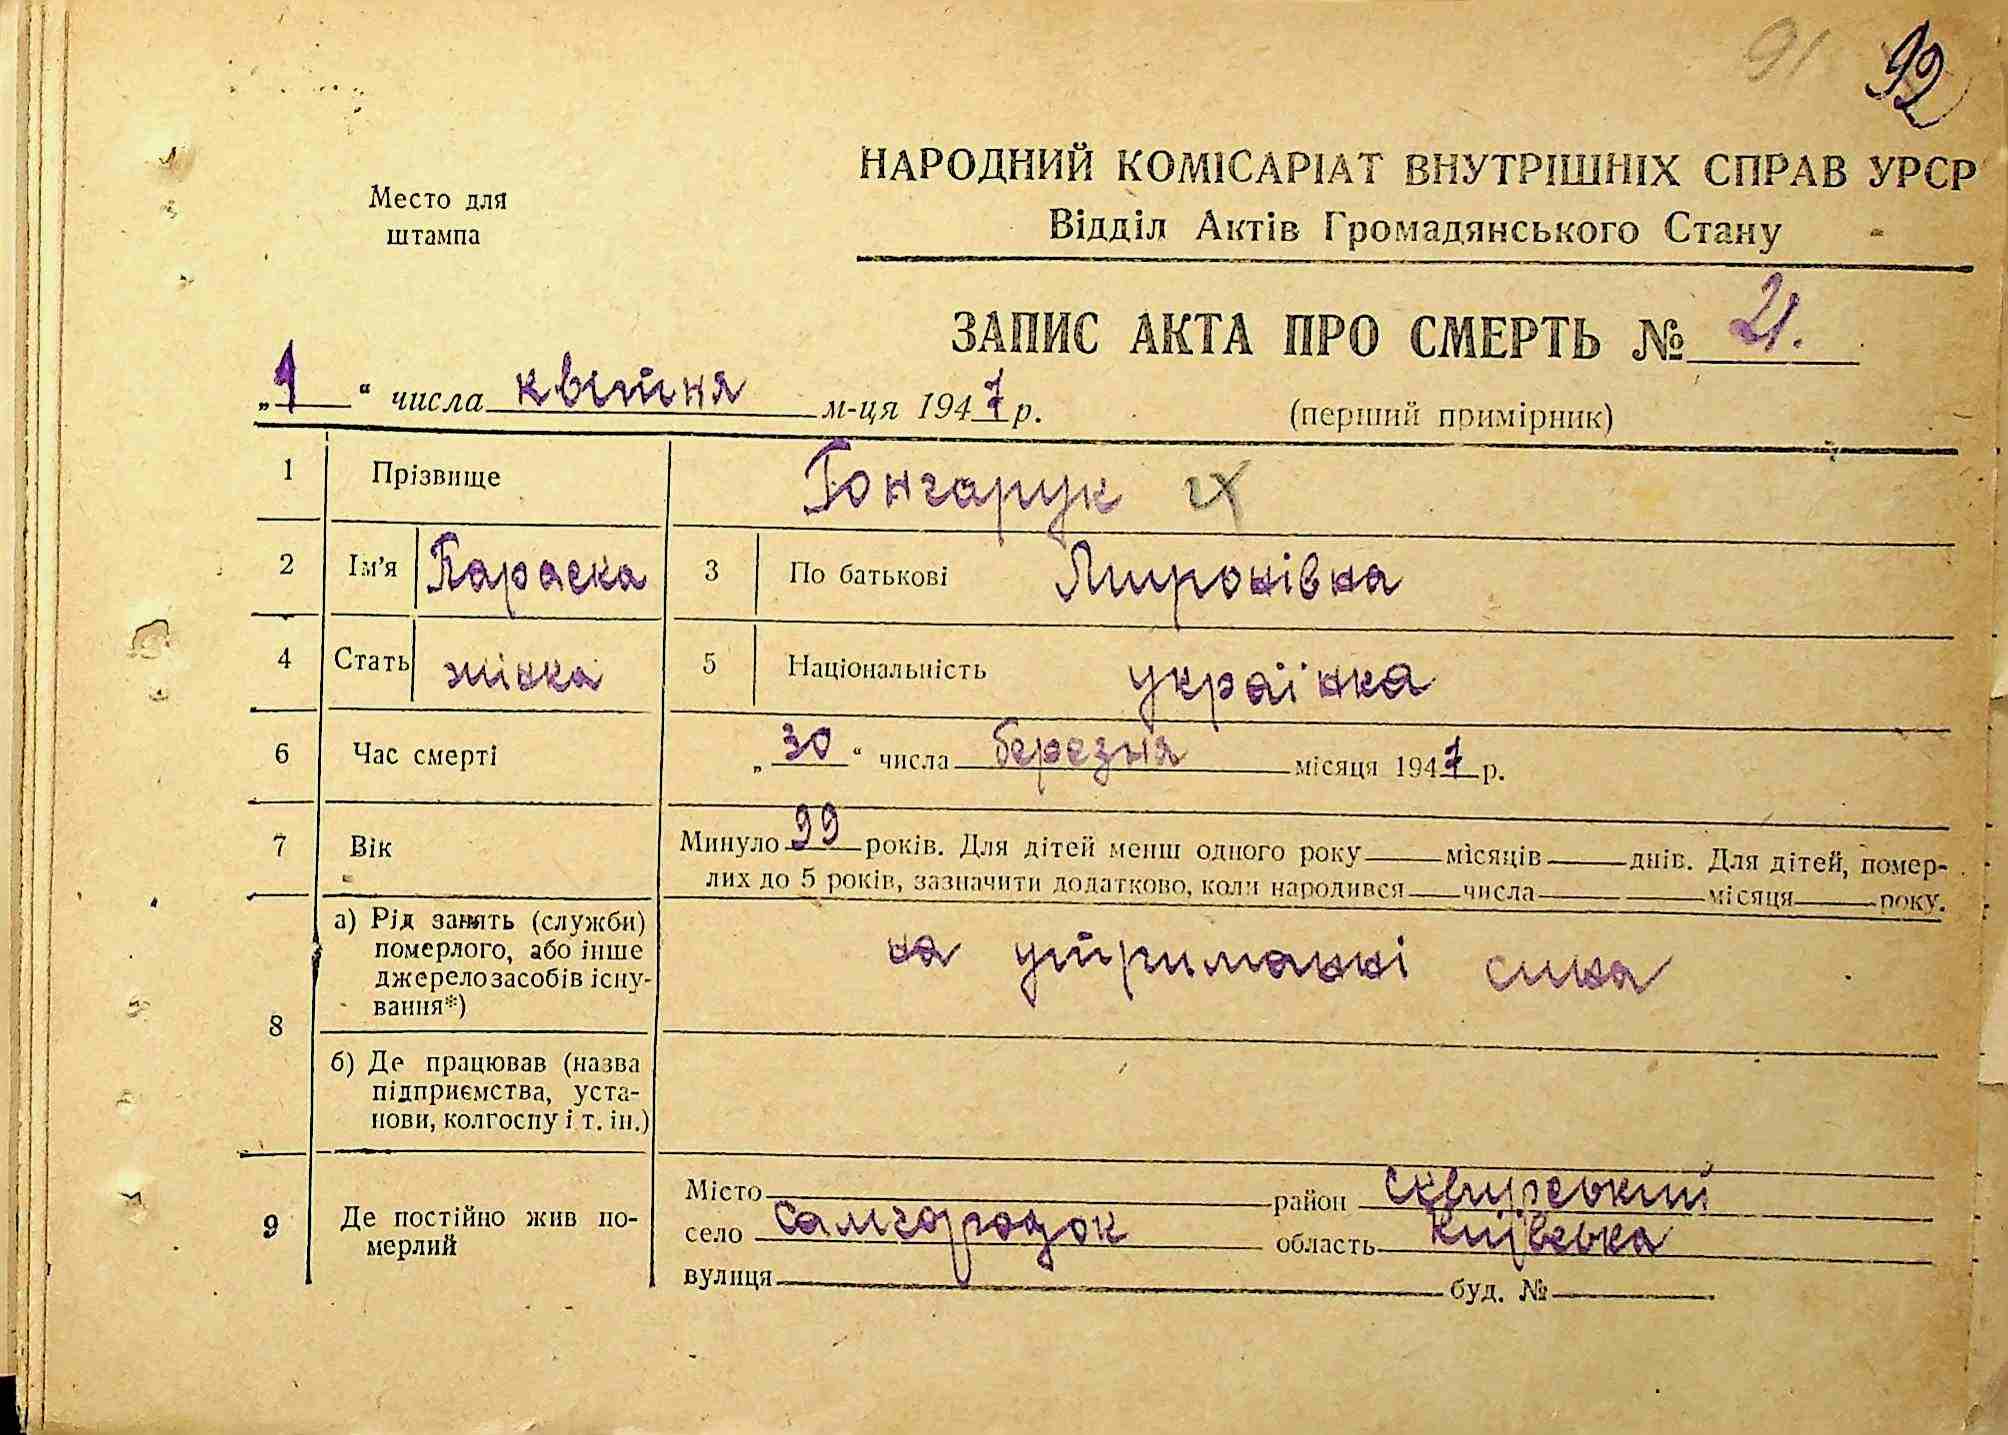 91 92
НАРОДНИЙ КОМІСАРІАТ ВНУТРІШНІХ СПРАВ УРСР
Место для
штампа
Відділ Актів Громадянського Стану
ЗАПИС АКТА ПРО СМЕРТЬ № 21.
„1“ числа квітня м-ця 1947 р.
(перший примірник)
1 Прізвище Гончарук
2 Ім'я Параска 3 По батькові Миронівна
4 Стать жінка 5 Національність українка
6 Час смерті „30“ числа березня місяця 1947 р.
7 Вік Минуло 99 років. Для дітей менш одного року місяців днів. Для дітей, помер-
лих до 5 років, зазначити додатково, коли народився числа місяця року.
8 а) Рід занять (служби)
померлого, або інше
джерело засобів існу-
вання*)
на утриманні сина
б) Де працював (назва
підприємства, уста-
нови, колгоспу і т. ін.)
9 Де постійно жив по-
мерлий
Місто район Сквирський
село Самгородок область Київська
вулиця буд. №